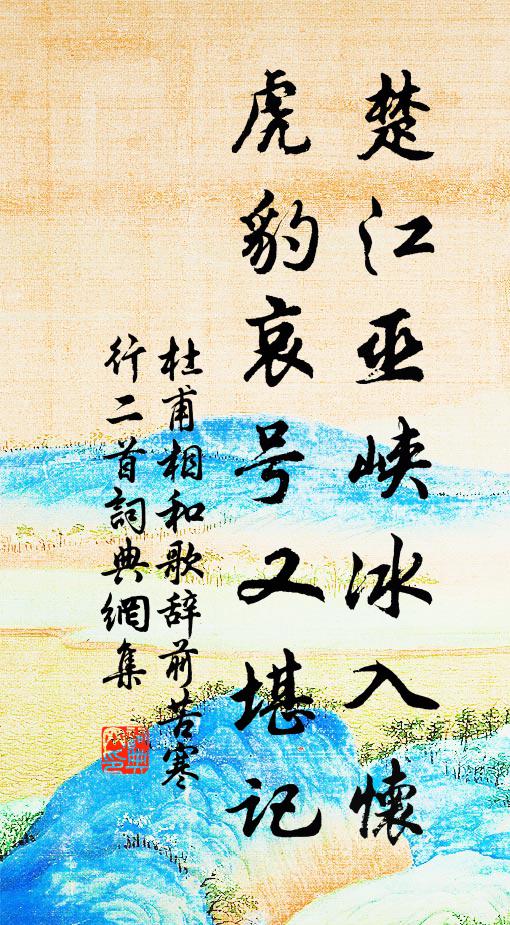 楚江巫峡冰入懷
虎豹哀号又堪记
杜甫相和歌辞前苦寒
行二首詞典網集